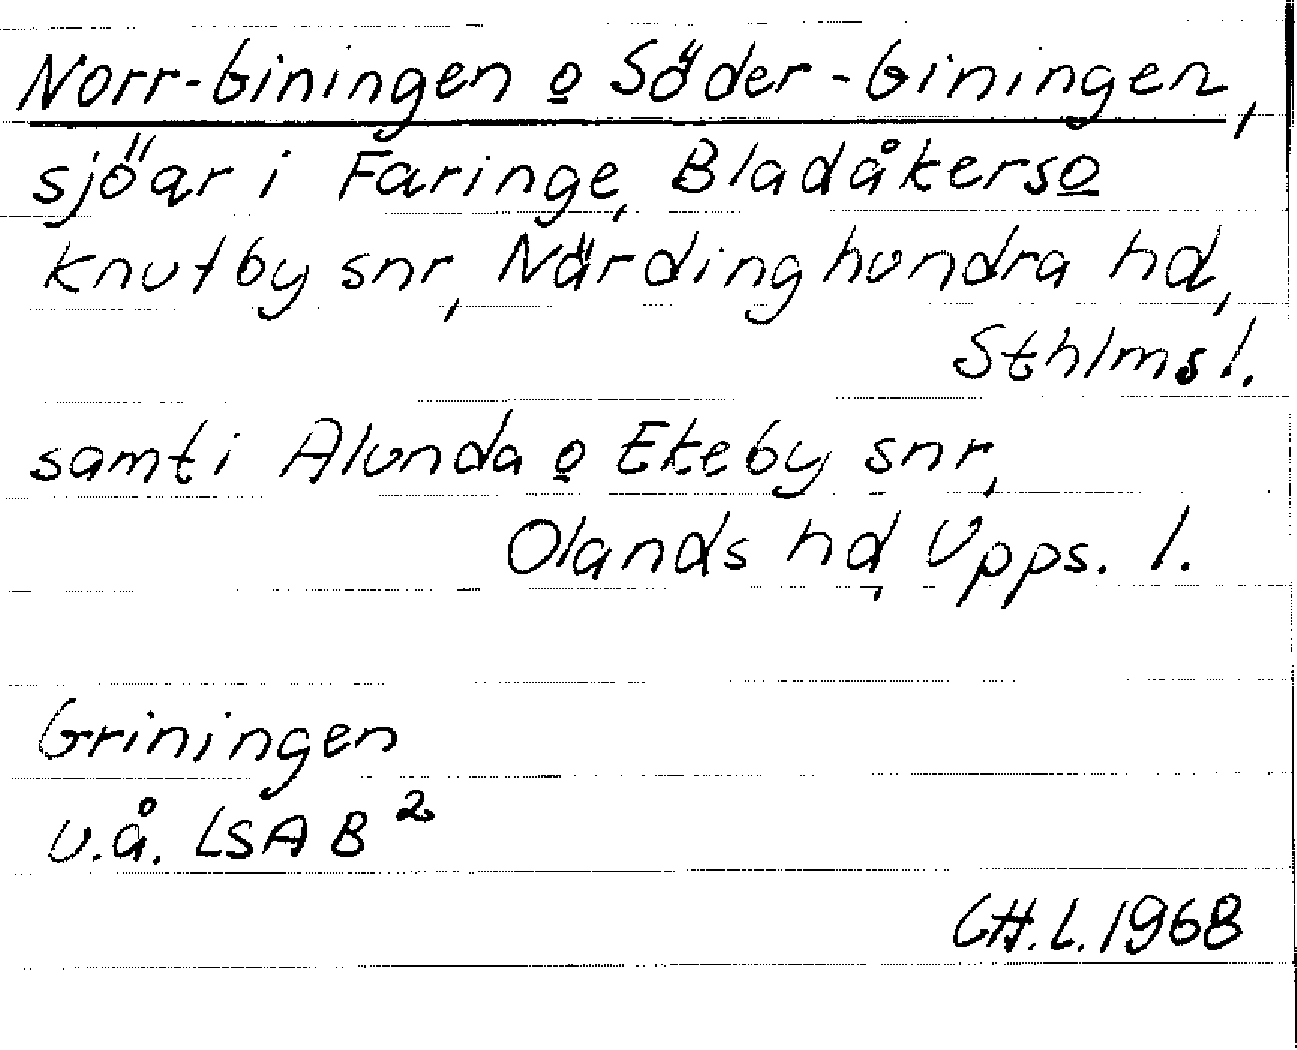 Norr-Giningen o Söder-Giningen,
sjöar i Faringe, Bladåkers o
Knutby snr, Närdinghundra hd,
Sthlms l.
samt i Alunda o Ekeby snr,
Olands hd, Upps. l.
Griningen
u.å. LSA B²
CH.L. 1968